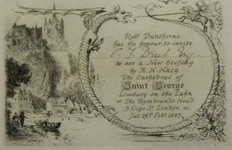 Robt Dunthorne
has the honour to invite
to see a New Etching
by A. H. Haig
The Cathedral of
Saint George
Limburg on the Lahn
at The Rembrandt Head
5 Vigo St London W
Sat 19th Feby 1887